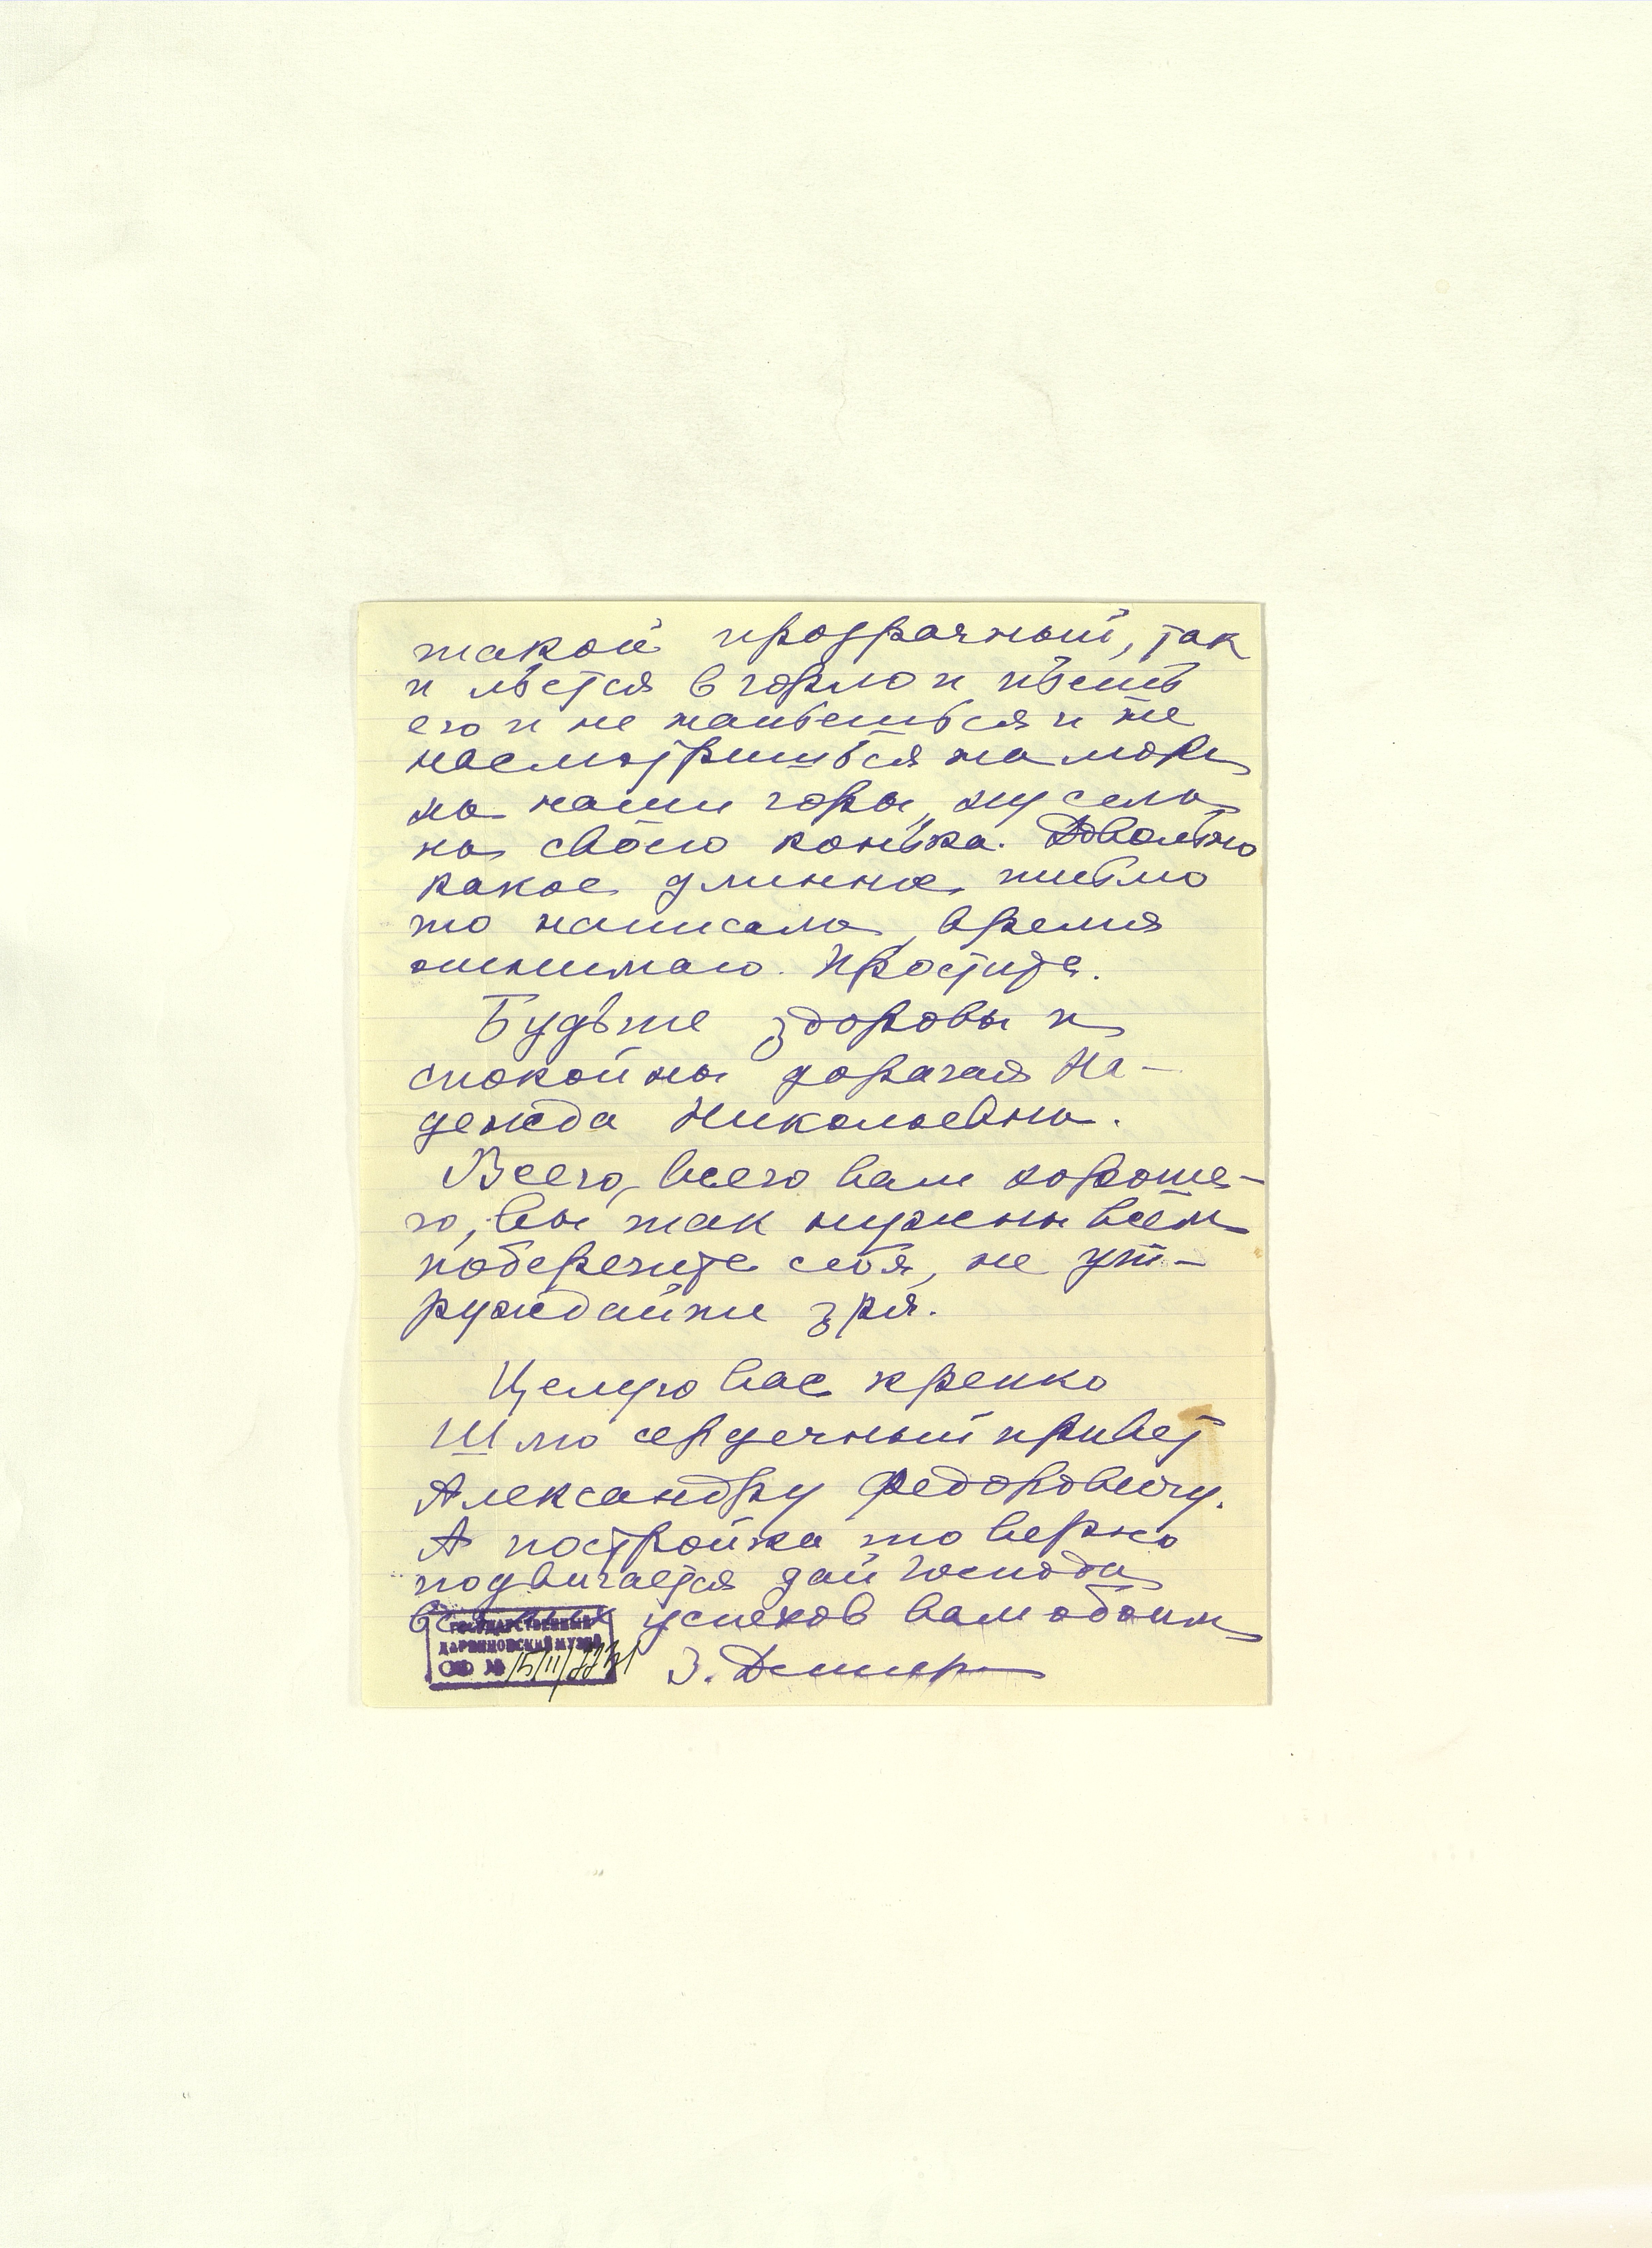 такой прозрачный, так
и льется в горло и пьешь
его и не напьешься и не
насмотришься на море
на наши горы, ну села
на своего конька. Довольно
какое длинное письмо
то написала, время
отнимаю. Простите.
Будьте здоровы и
спокойны дорогая На-
дежда Николаевна.
Всего, всего вам хороше-
го, вы так нужны всем
поберегите себя, не ут-
руждайте зря.
Целую вас крепко
Шлю сердечный привет
Александру Федоровичу.
А постройка то верно
подвигается дай Господи
успехов вам обоим
З.
ГОСУДАРСТВЕННЫЙ
ДАРВИНОВСКИЙ МУЗЕЙ